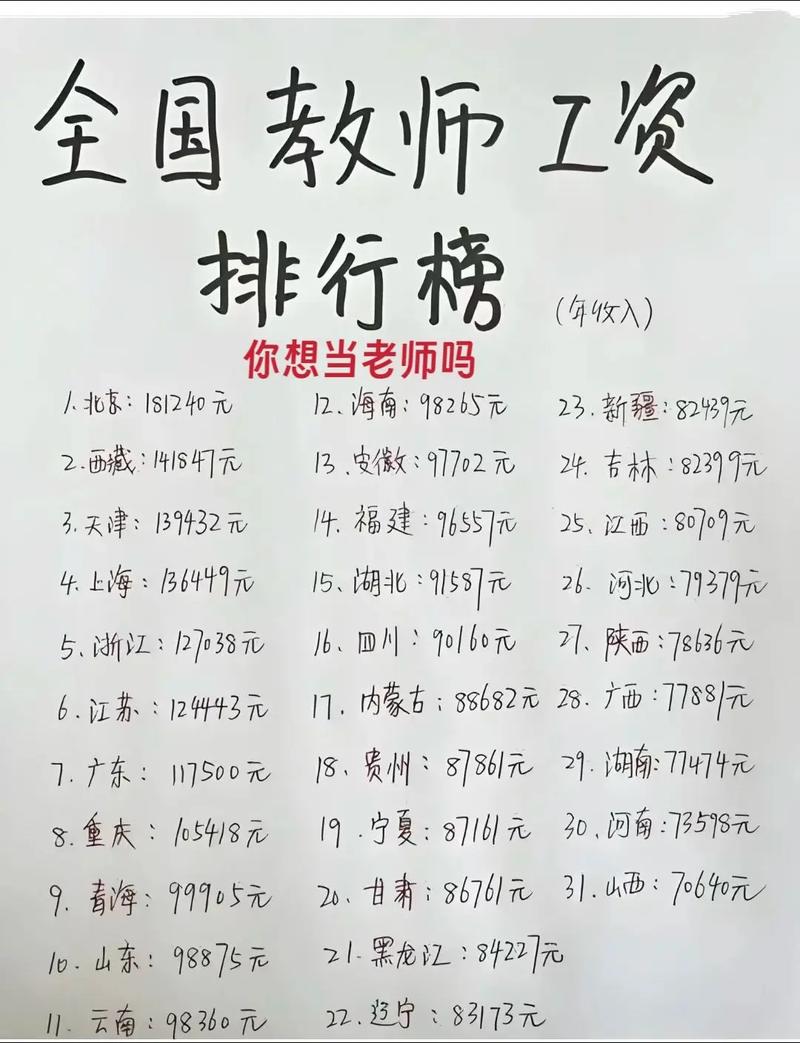 全国教师工资
排行榜
(年收入)
你想当老师吗
1.北京:181240元
2.西藏:141847元
3.天津:139432元
4.上海:136449元
5.浙江:127038元
6.江苏:124443元
7.广东:117500元
8.重庆:105418元
9.青海:99905元
10.山东:98875元
11.云南:98360元
12.海南:98265元
13.安徽:97702元
14.福建:96557元
15.湖北:91587元
16.四川:90160元
17.内蒙古:88682元
18.贵州:87861元
19.宁夏:87161元
20.甘肃:86761元
21.黑龙江:84227元
22.辽宁:83173元
23.新疆:82439元
24.吉林:82399元
25.江西:80709元
26.河北:79379元
27.陕西:78636元
28.广西:77881元
29.湖南:77474元
30.河南:73598元
31.山西:70640元